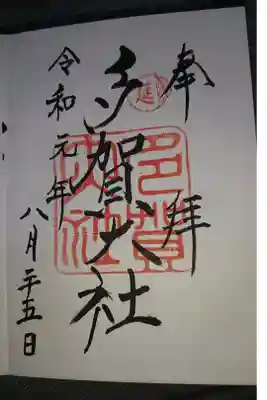 奉拝
延
多賀大社
多賀大社
令和元年
八月二十五日